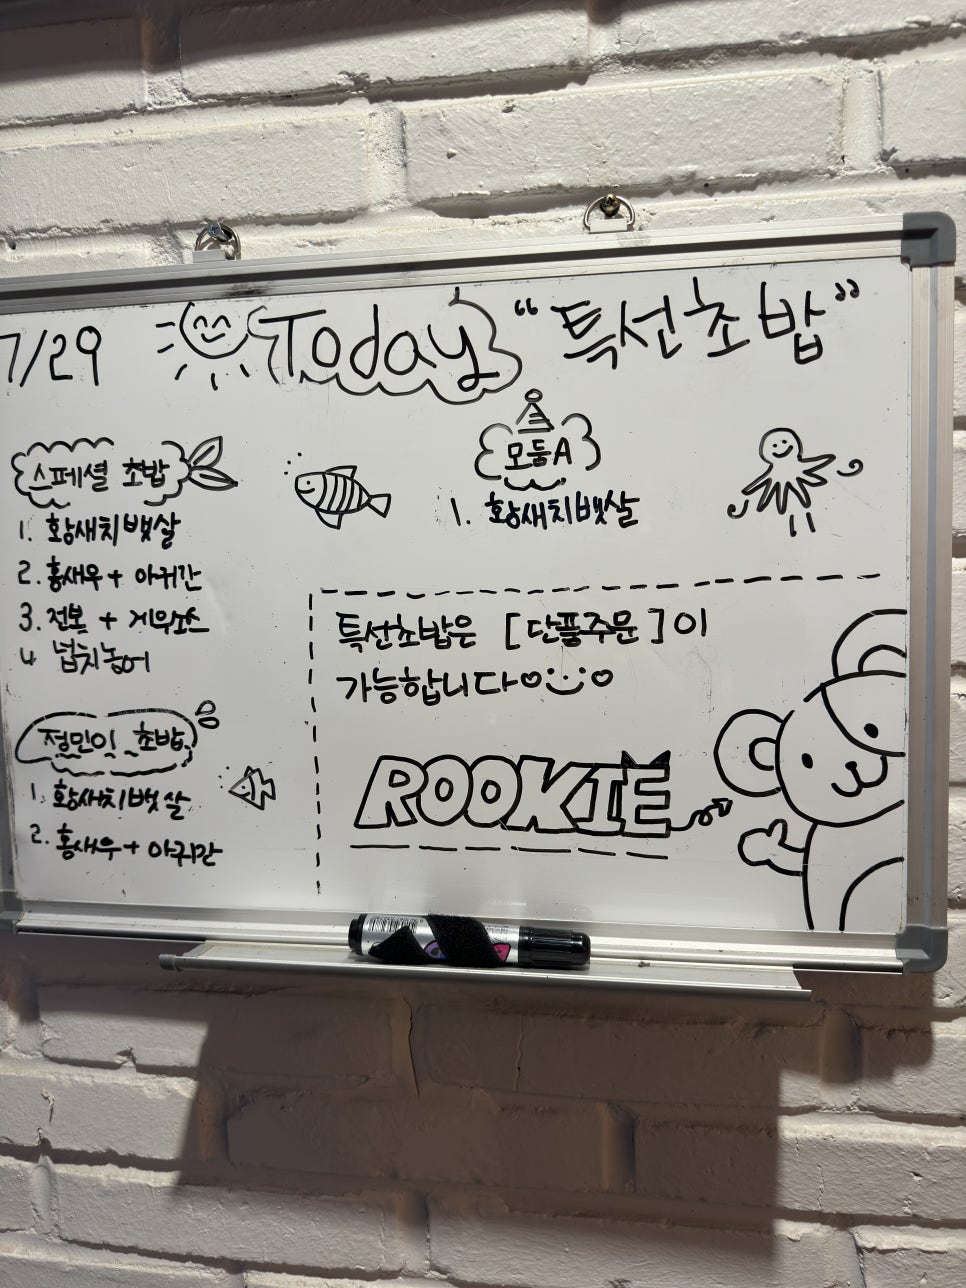 7/29 Today "특선초밥"
스페셜 초밥
1. 황새치뱃살
2. 홍새우 + 아귀간
3. 전복 + 게우소스
4 넙치농어
정민익 초밥
1. 황새치뱃살
2. 홍새우 + 아귀간
모둠A
1. 황새치뱃살
특선초밥은 [단품주문]이
가능합니다
ROOKIE